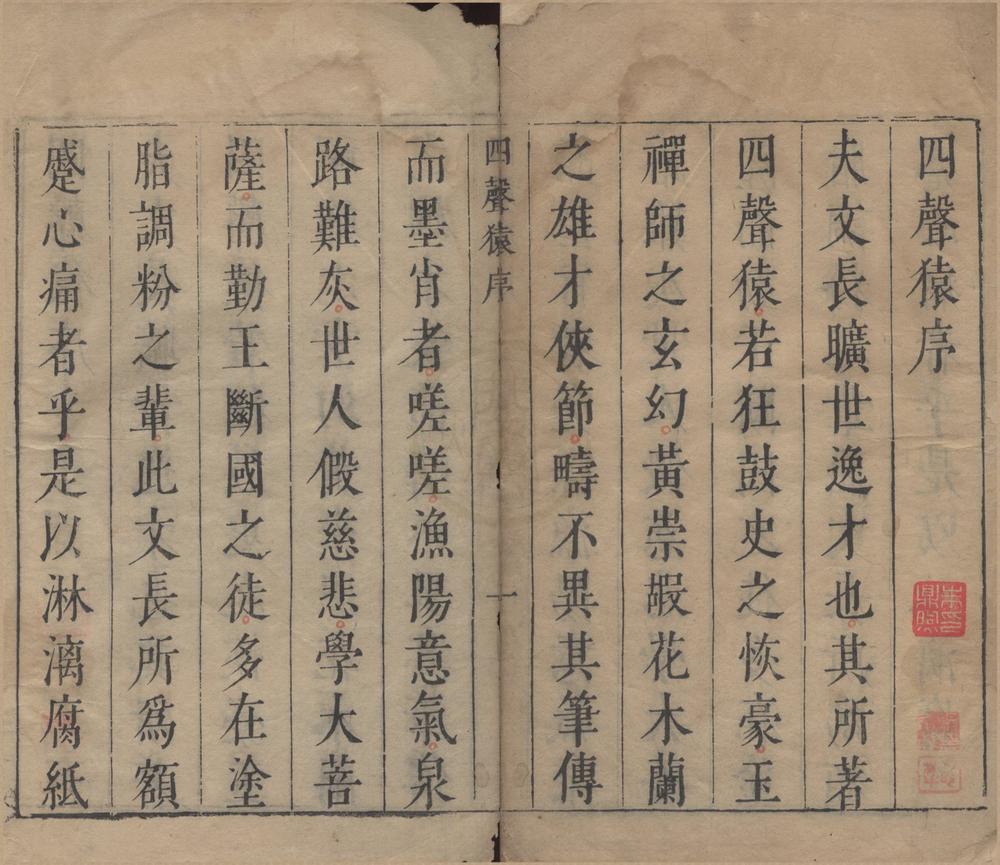 四聲猿序
夫文長曠世逸才也其所著
四聲猿若狂鼓史之恢豪玉
禪師之玄幻黃崇嘏花木蘭
之雄才俠節疇不異其筆傳
四聲猿序 一
而墨肖者嗟嗟漁陽意氣泉
路難灰世人假慈悲學大菩
薩而勤王斷國之徒多在塗
脂調粉之輩此文長所爲額
蹙心痛者乎是以淋漓腐紙